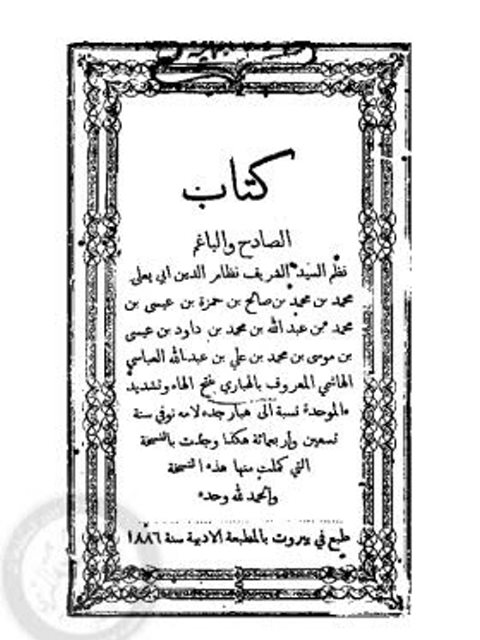 كتاب
الصادح والباغم
نظم السيد الشريف نظام الدين ابي يعلى
محمد بن محمد بن صالح بن حمزة بن عيسى بن
محمد بن عبد الله بن محمد بن داود بن عيسى
بن موسى بن محمد بن علي بن عبد الله العباسي
الهاشمي المعروف بالهباري بفتح الهاء وتشديد
الموحدة نسبة الى هبار جده لامه توفي سنة
تسعين واربعمائة هكذا وجدت بالنسخة
التي كملت منها هذه النسخة
والحمد لله وحده
طبع في بيروت بالمطبعة الادبية سنة ١٨٨٦